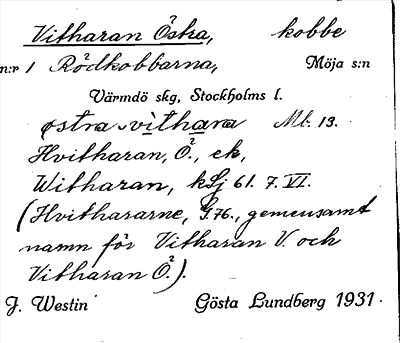 Vitharan Östra, kobbe
n:r 1 Rödkobbarna, Möja s:n
Värmdö skg, Stockholms l.
östra vithara Mt. 13.
Hvitharan, Ö., ek,
Witharan, kSj 61. 7. VI.
(Hvithararne, G.76., gemensamt
namn för Vitharan V. och
Vitharan Ö.).
J. Westin Gösta Lundberg 1931.